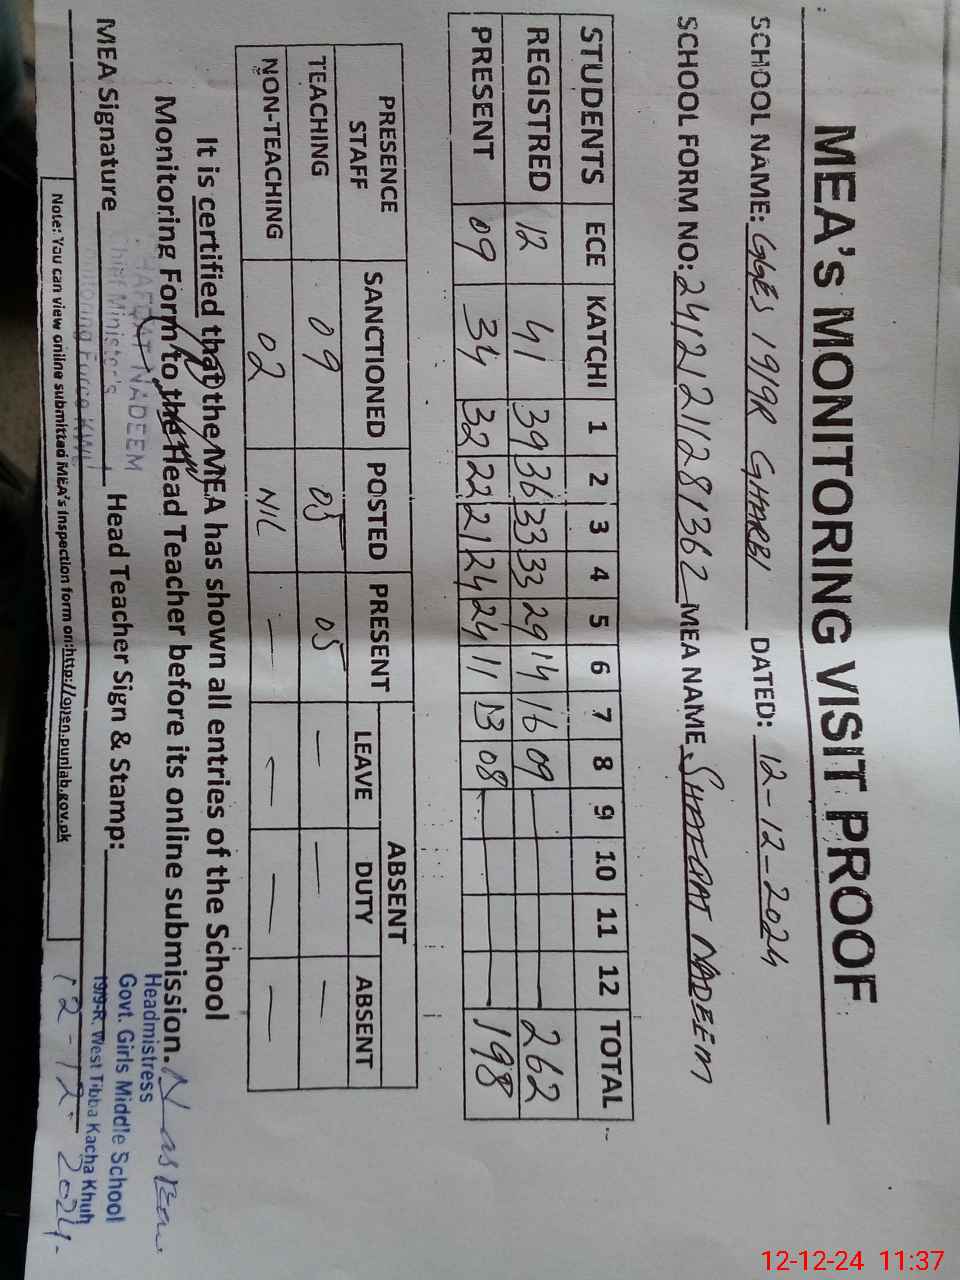 MEA's MONITORING VISIT PROOF
SCHOOL NAME: GGES 19/9R GHARBI DATED: 12-12-2024
SCHOOL FORM NO: 2412122112281362 MEA NAME SHAFQAT NADEEM
STUDENTS ECE KATCHI 1 2 3 4 5 6 7 8 9 10 11 12 TOTAL
REGISTRED 12 41 39 36 33 33 29 14 16 09 262
PRESENT 09 34 32 22 21 24 24 11 13 08 198
PRESENCE STAFF SANCTIONED POSTED PRESENT ABSENT
LEAVE DUTY ABSENT
TEACHING 09 05 05 — — — —
NON-TEACHING 02 NIL — — — —
It is certified that the MEA has shown all entries of the School
Monitoring Form to the Head Teacher before its online submission.
SHAFQAT NADEEM
Chief Minister's
Monitoring Force KWL
MEA Signature Head Teacher Sign & Stamp:
Headmistress
Govt. Girls Middle School
19/9-R. West Tibba Kacha Khuh
12-12-2024
Note: You can view online submitted MEA's inspection form on:http://open.punjab.gov.pk
12-12-24 11:37